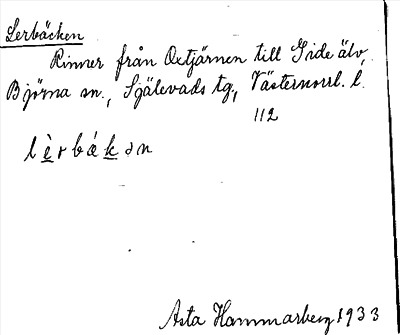 Lerbäcken
Rinner från Oxtjärnen till Gide älv,
Björna sn., Själevads tg, Västernorrl. l.
112
l è r b ä k ə n
Asta Hammarberg 1933